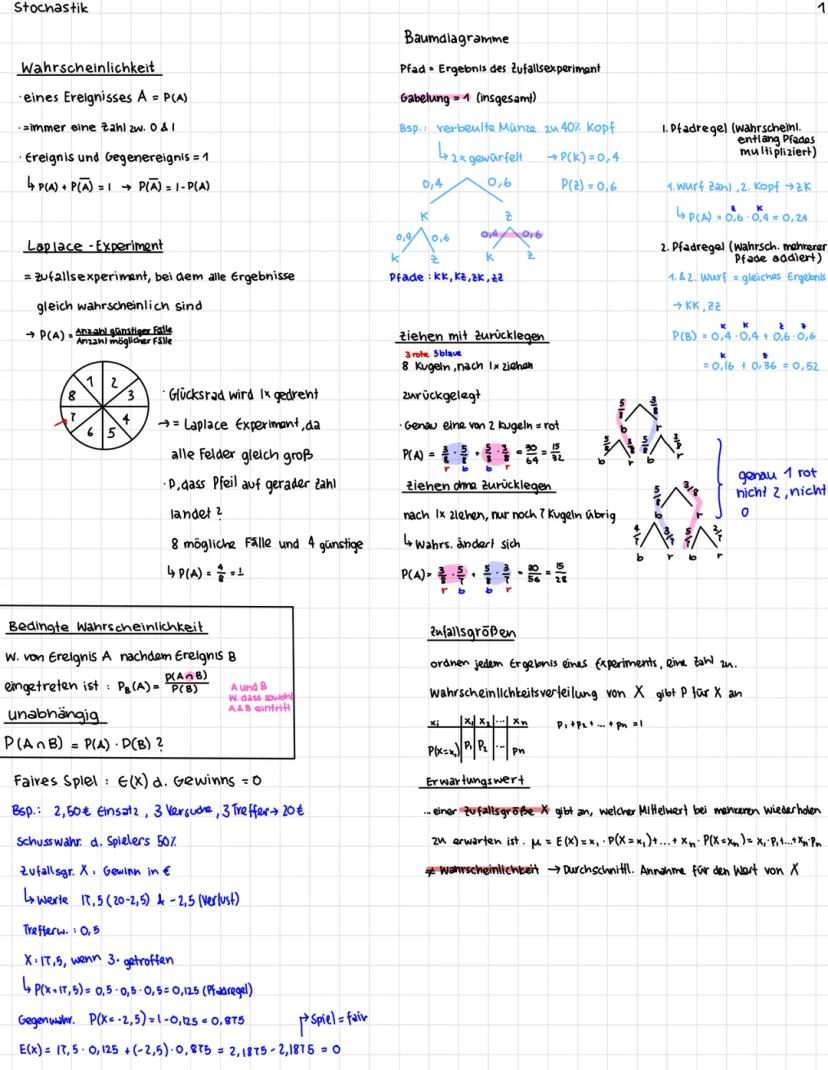 Stochastik
1
Wahrscheinlichkeit
· eines Ereignisses A = P(A)
· =immer eine Zahl zw. 0 & 1
· Ereignis und Gegenereignis = 1
↳ P(A) + P(A̅) = 1 → P(A̅) = 1 - P(A)
Laplace - Experiment
= Zufallsexperiment, bei dem alle Ergebnisse
gleich wahrscheinlich sind
→ P(A) = Anzahl günstiger Fälle / Anzahl möglicher Fälle
1 2 3 4 5 6 7 8
· Glücksrad wird 1x gedreht
→ = Laplace Experiment, da
alle Felder gleich groß
· P, dass Pfeil auf gerader Zahl
landet?
8 mögliche Fälle und 4 günstige
↳ P(A) = 4/8 = 1
Bedingte Wahrscheinlichkeit
W. von Ereignis A nachdem Ereignis B
eingetreten ist : P_B(A) = P(A∩B) / P(B)
A und B
W. dass sowohl
A & B eintritt
unabhängig
P(A∩B) = P(A) · P(B) ?
Faires Spiel : E(X) d. Gewinns = 0
Bsp.: 2,50€ Einsatz, 3 Versuche, 3 Treffer → 20€
Schusswahr. d. Spielers 50%
Zufallsgr. X : Gewinn in €
↳ Werte 17,5 (20-2,5) & -2,5 (Verlust)
Trefferw. : 0,5
X = 17,5, wenn 3· getroffen
↳ P(X=17,5) = 0,5 · 0,5 · 0,5 = 0,125 (Pfadregel)
Gegenwahr. P(X=-2,5) = 1-0,125 = 0,875
→ Spiel = fair
E(X) = 17,5 · 0,125 + (-2,5) · 0,875 = 2,1875 - 2,1875 = 0
Baumdiagramme
Pfad = Ergebnis des Zufallsexperiment
Gabelung = 1 (insgesamt)
Bsp.: verbeulte Münze zu 40% Kopf
↳ 2x gewürfelt → P(K) = 0,4
P(Z) = 0,6
0,4 0,6
K Z
0,4 0,6 0,4 0,6
K Z K Z
Pfade : KK, KZ, ZK, ZZ
1. Pfadregel (Wahrscheinl.
entlang Pfades
multipliziert)
1. Wurf Zahl, 2. Kopf → ZK
Z K
↳ P(A) = 0,6 · 0,4 = 0,24
2. Pfadregel (Wahrsch. mehrerer
Pfade addiert)
1. & 2. Wurf = gleiches Ergebnis
→ KK, ZZ
K K Z Z
P(B) = 0,4 · 0,4 + 0,6 · 0,6
K Z
= 0,16 + 0,36 = 0,52
Ziehen mit Zurücklegen
3 rote 5 blaue
8 Kugeln, nach 1x ziehen
zurückgelegt
· Genau eine von 2 Kugeln = rot
P(A) = 3/8 · 5/8 + 5/8 · 3/8 = 30/64 = 15/32
r b b r
5/8 3/8
b r
5/8 3/8 5/8 3/8
b r b r
Ziehen ohne Zurücklegen
nach 1x ziehen, nur noch 7 Kugeln übrig
↳ Wahrs. ändert sich
P(A) = 3/8 · 5/7 + 5/8 · 3/7 = 30/56 = 15/28
r b b r
5/8 3/8
b r
4/7 3/7 5/7 2/7
b r b r
genau 1 rot
nicht 2, nicht
0
Zufallsgrößen
ordnen jedem Ergebnis eines Experiments, eine Zahl zu.
Wahrscheinlichkeitsverteilung von X gibt P für X an
xi x₁ x₂ ... xn
P(X=xi) P₁ P₂ ... Pn
P₁ + P₂ + ... + Pn = 1
Erwartungswert
... einer Zufallsgröße X gibt an, welcher Mittelwert bei mehreren Wiederholen
zu erwarten ist. μ = E(X) = x₁ · P(X=x₁) + ... + xn · P(X=xn) = x₁·P₁+...+xn·Pn
≠ Wahrscheinlichkeit → Durchschnittl. Annahme für den Wert von X